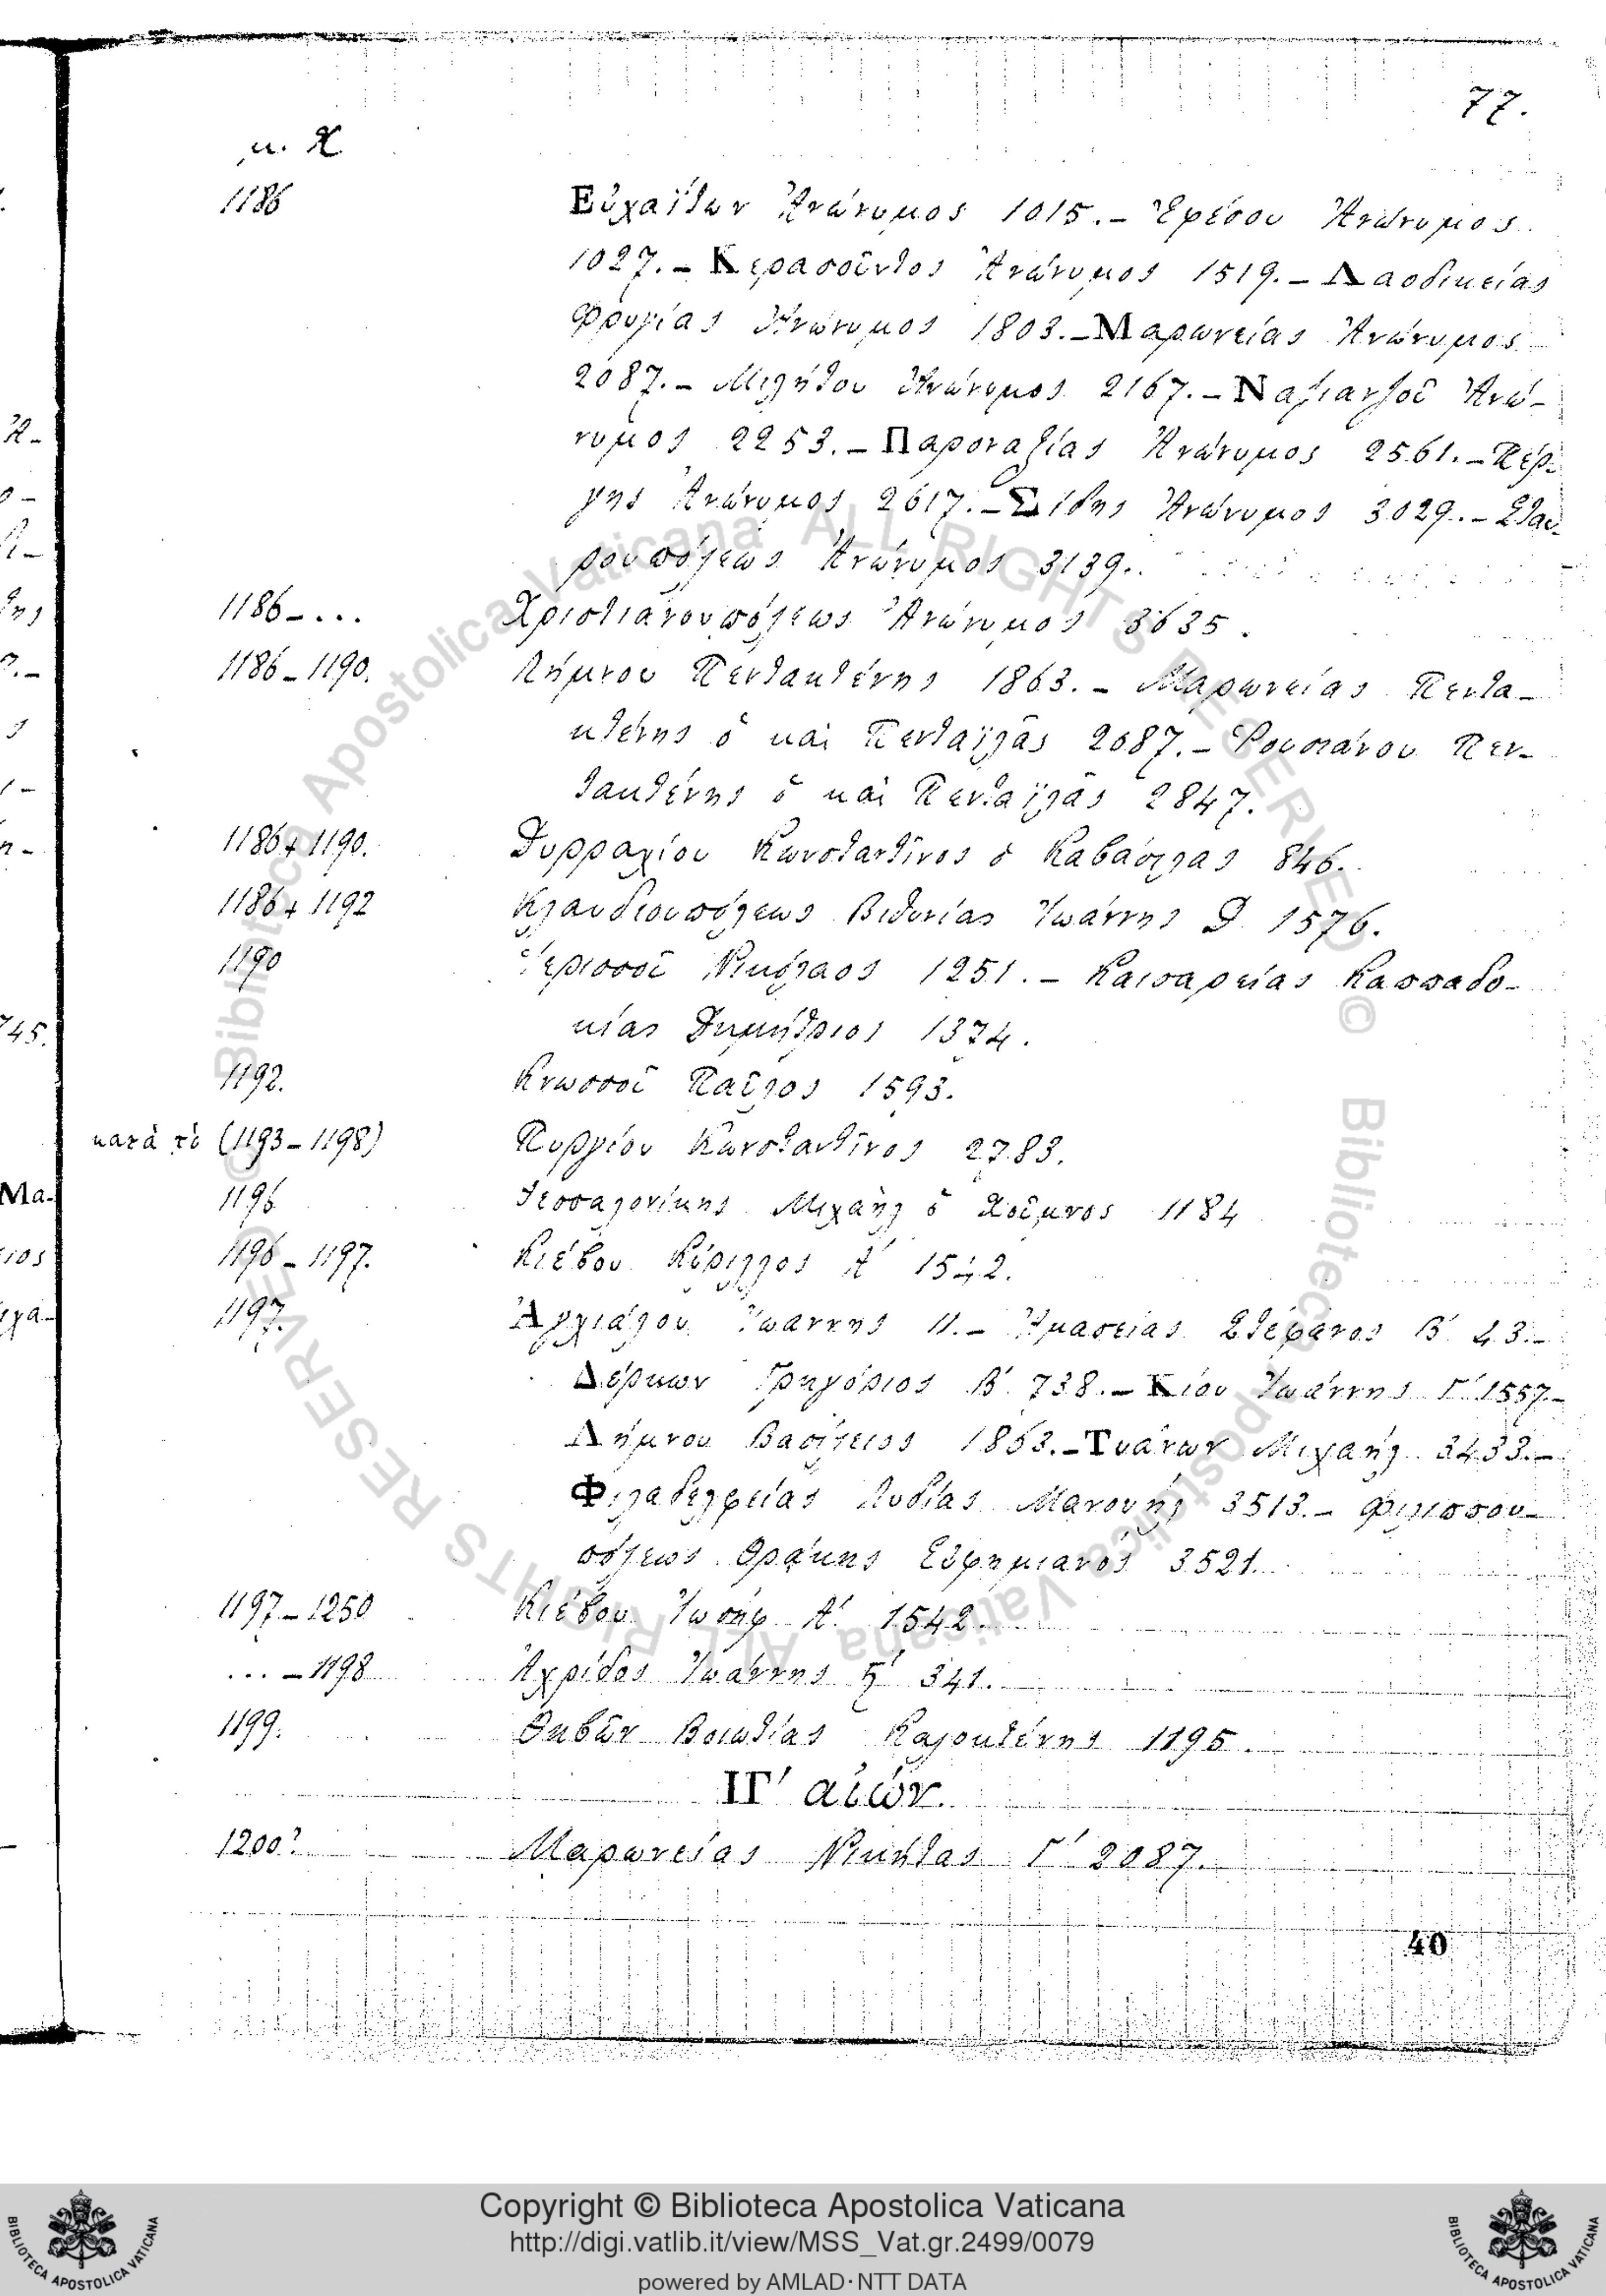 77.
μ. Χ.
1186 Εὐχαΐτων Ἀνώνυμος 1015. – Ἐφέσου Ἀνώνυμος
1027. – Κερασοῦντος Ἀνώνυμος 1519. – Λαοδικείας
Φρυγίας Ἀνώνυμος 1803. – Μαρωνείας Ἀνώνυμος
2087. – Μιλήτου Ἀνώνυμος 2167. – Ναζιανζοῦ Ἀνώ-
νυμος 2253. – Παροναξίας Ἀνώνυμος 2561. – Πέρ-
γης Ἀνώνυμος 2617. – Σίδης Ἀνώνυμος 3029. – Σταυ-
ρουπόλεως Ἀνώνυμος 3139.
1186 – ... Χριστιανουπόλεως Ἀνώνυμος 3635.
1186 – 1190. Λήμνου Πεντακτένης 1863. – Μαρωνείας Πεντα-
κτένης ὁ καὶ Πενταϊλᾶς 2087. – Ῥουσιάνου Πεν-
τακτένης ὁ καὶ Πενταϊλᾶς 2847.
1186 + 1190. Δυρραχίου Κωνσταντῖνος ὁ Καβάσιλας 846.
1186 + 1192 Κλαυδιουπόλεως Βιθυνίας Ἰωάννης Δ 1576.
1190 Ἱερισσοῦ Νικόλαος 1251. – Καισαρείας Καππαδο-
κίας Δημήτριος 1374.
1192. Κνωσσοῦ Παῦλος 1593.
κατὰ τὸ (1193 – 1198) Πυργίου Κωνσταντῖνος 2783.
1196 Θεσσαλονίκης Μιχαὴλ ὁ Χοῦμνος 1184
1196 – 1197. Κιέβου Κύριλλος Α΄ 1542.
1197. Ἀγχιάλου Ἰωάννης 11. – Ἀμασείας Στέφανος Β΄ 43. –
Δέρκων Γρηγόριος Β΄ 738. – Κίου Ἰωάννης Γ΄ 1557. –
Λήμνου Βασίλειος 1863. – Τυάνων Μιχαὴλ 3433. –
Φιλαδελφείας Λυδίας Μανουὴλ 3513. – Φιλιππου-
πόλεως Θράκης Εὐφημιανός 3521.
1197 – 1250 Κιέβου Ἰωσὴφ Α΄ 1542.
... – 1198 Ἀχρίδος Ἰωάννης Ϛ΄ 341.
1199. Θηβῶν Βοιωτίας Καλοκτένης 1195.
ΙΓ΄ αἰών.
1200? Μαρωνείας Νικήτας Γ΄ 2087.
40
Copyright © Biblioteca Apostolica Vaticana
http://digi.vatlib.it/view/MSS_Vat.gr.2499/0079
powered by AMLAD·NTT DATA